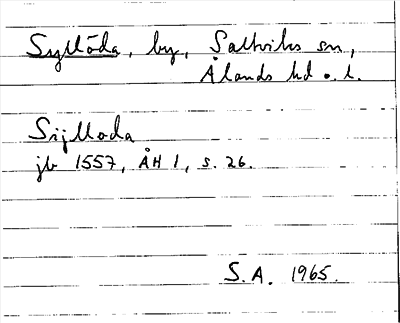 Syllöda, by, Saltviks sn,
Ålands hd o. l.
Sijlloda
jb 1557, ÅH 1, s. 26.
S.A. 1965.